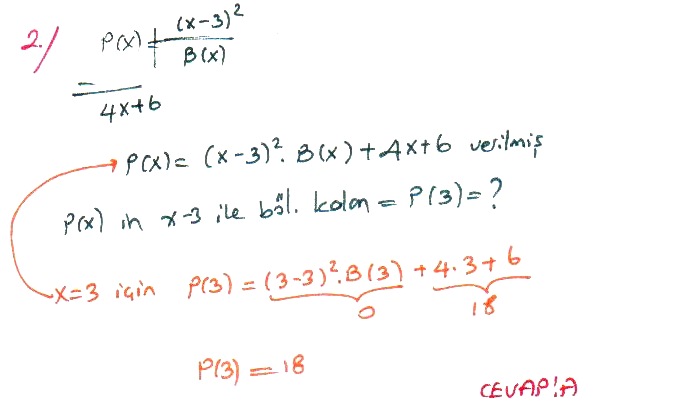 2./ P(x) | (x-3)²
B(x)
-
4x+6
P(x) = (x-3)². B(x) + 4x+6 verilmiş
P(x) in x-3 ile böl. kalan = P(3) = ?
x=3 için P(3) = (3-3)².B(3) + 4.3+6
0 18
P(3) = 18
CEVAP:A